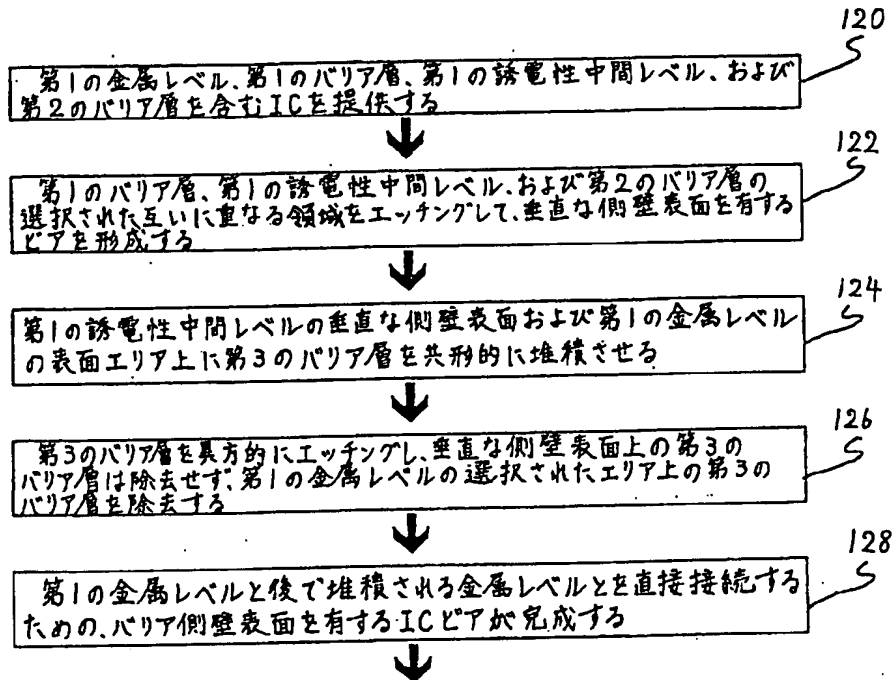 120
第1の金属レベル、第1のバリア層、第1の誘電性中間レベル、および
第2のバリア層を含むICを提供する
122
第1のバリア層、第1の誘電性中間レベル、および第2のバリア層の
選択された互いに重なる領域をエッチングして、垂直な側壁表面を有する
ビアを形成する
124
第1の誘電性中間レベルの垂直な側壁表面および第1の金属レベル
の表面エリア上に第3のバリア層を共形的に堆積させる
126
第3のバリア層を異方的にエッチングし、垂直な側壁表面上の第3の
バリア層は除去せず、第1の金属レベルの選択されたエリア上の第3の
バリア層を除去する
128
第1の金属レベルと後で堆積される金属レベルとを直接接続する
ための、バリア側壁表面を有するICビアが完成する